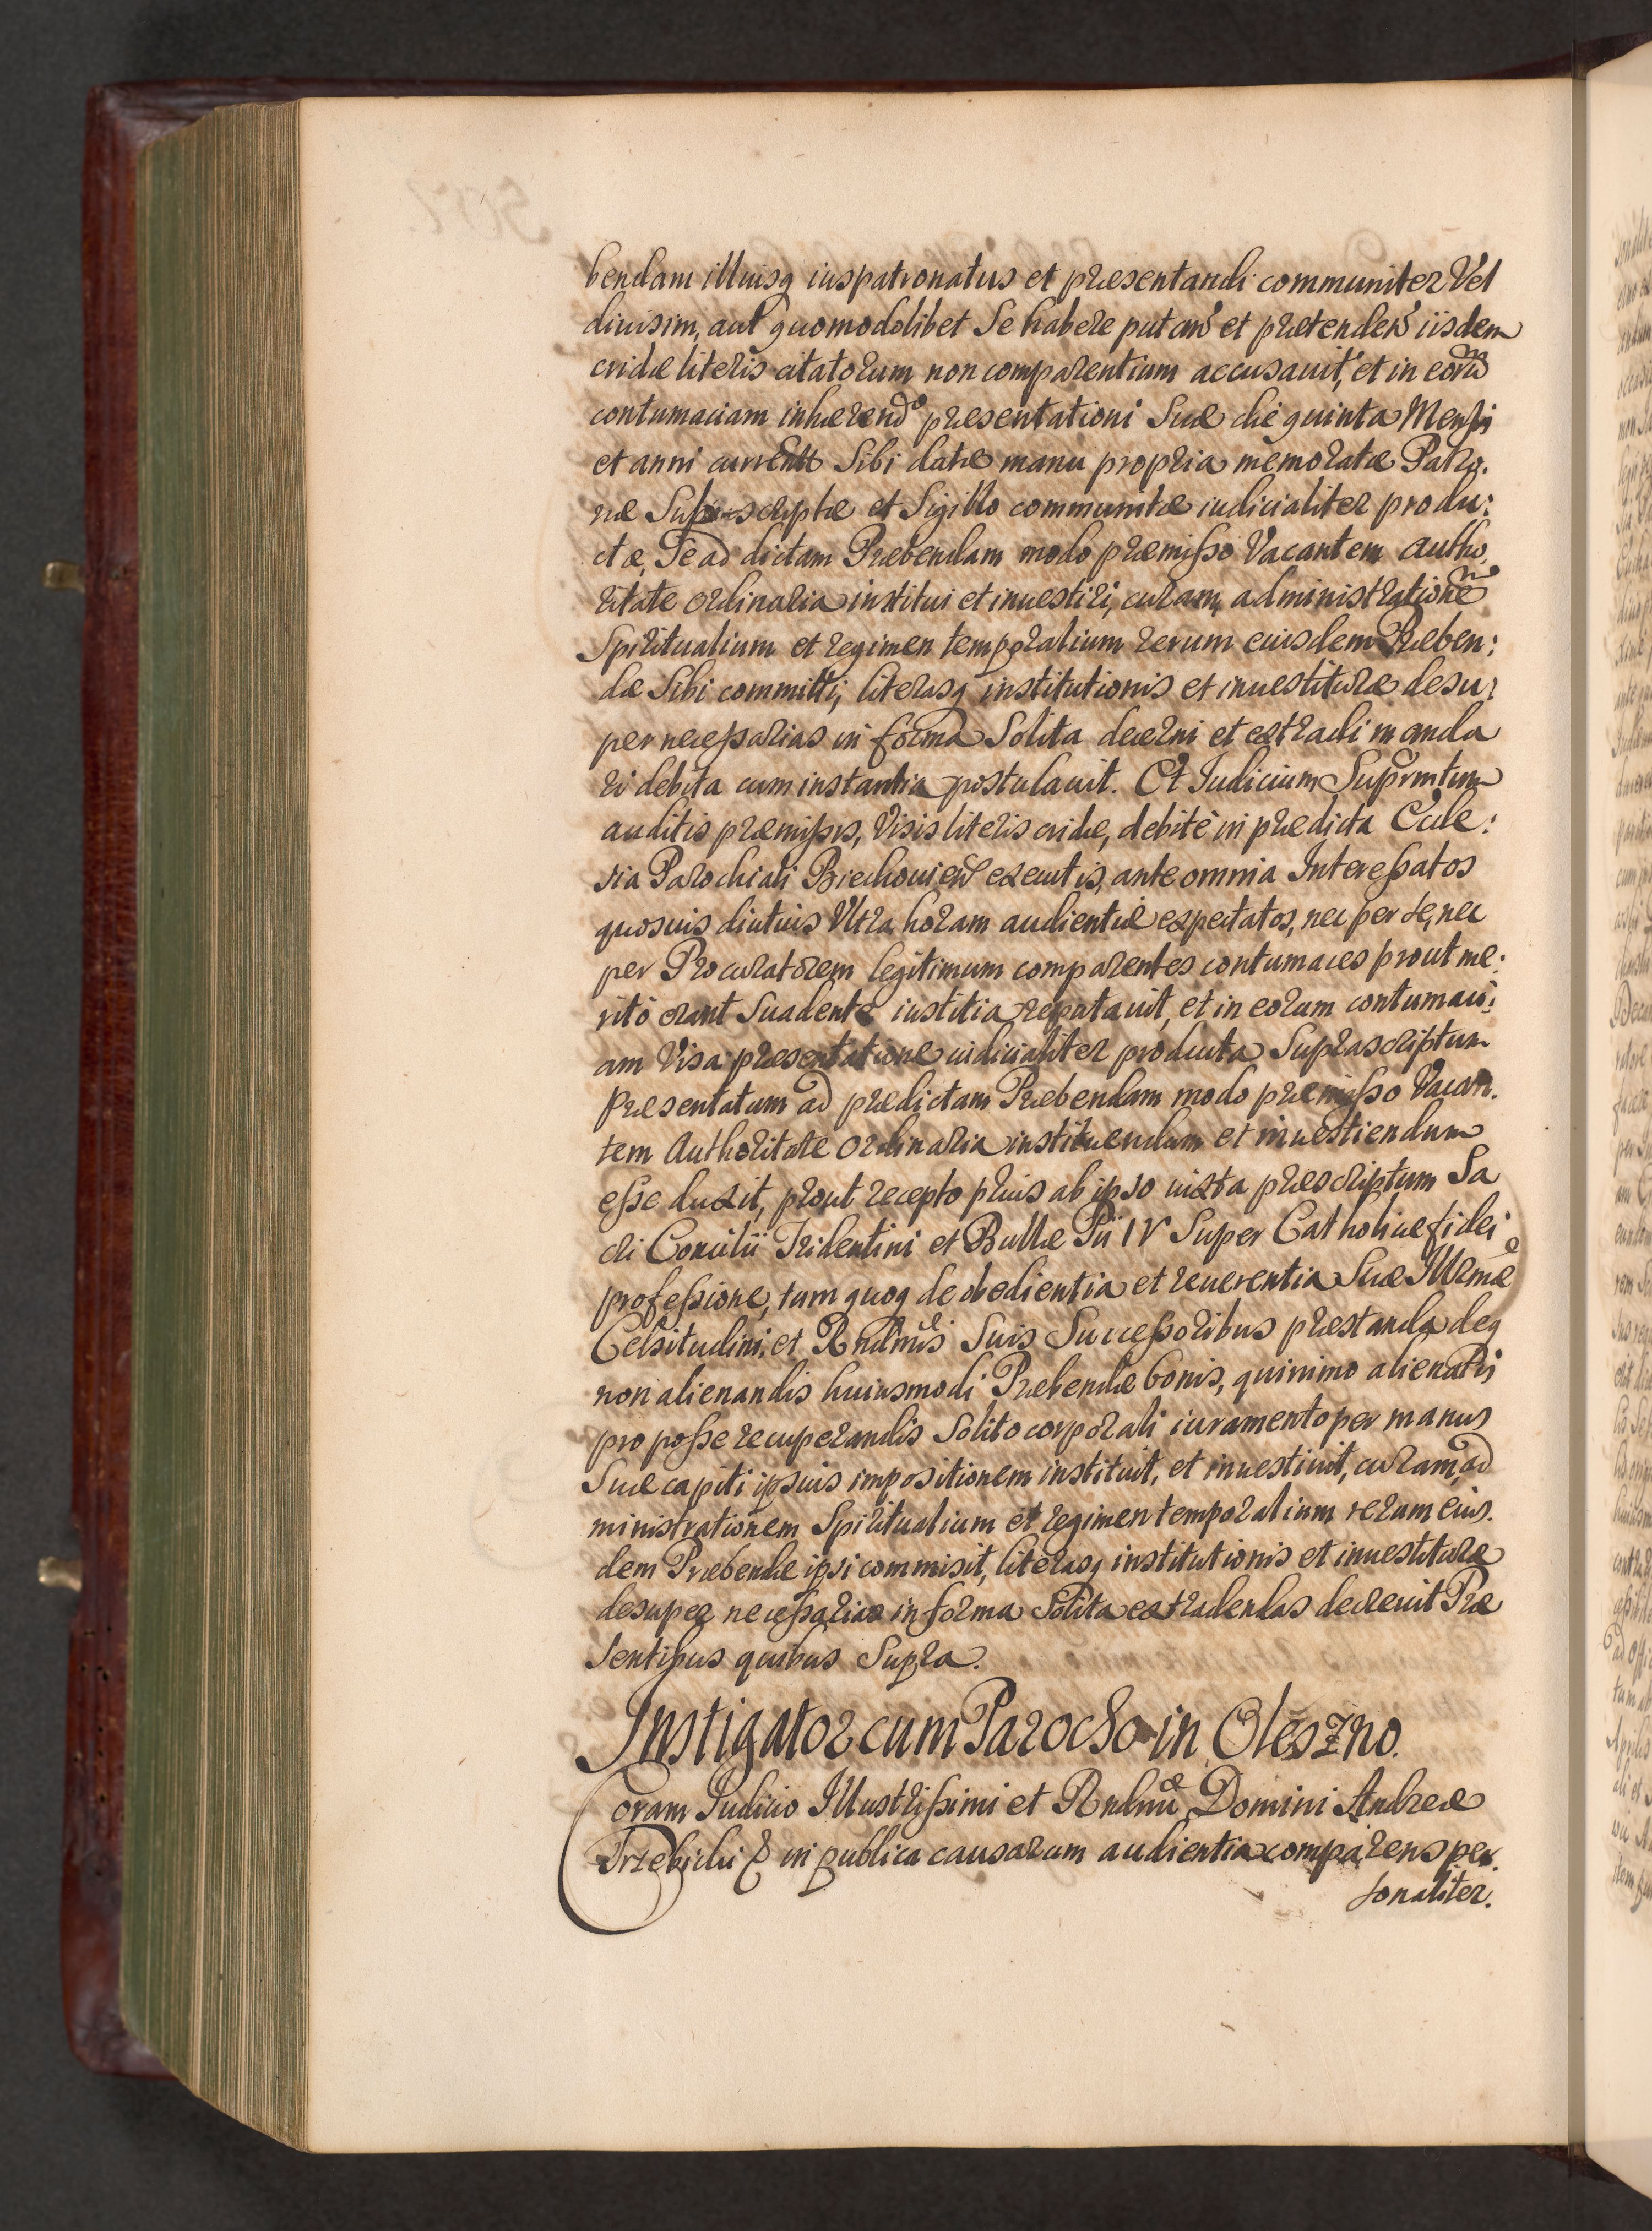 bendam illiusq iuspatronatus et præsentandi communiter Vel
diuisim, aut quomodolibet Se habere putan et prætenden iisdem
cridæ literis citatorum non comparentium accusauit, et in eorū
contumaciam inhærendo præsentationi Suæ die quinta Mensis
et anni current Sibi datæ manu propria memoratæ Patro.
næ Subscriptæ et Sigillo communitæ iudicialiter produ:
ctæ, Se ad dictam Præbendam modo præmisso Vacantem autho.
ritate ordinaria institui et inuestiri, curam, administrationē
Spiritualium et regimen temporalium rerum eiusdem Præben:
dæ Sibi committi, literasq institutionis et inuestituræ desu:
per necessarias in forma Solita decerni et extradi manda
ri debita cum instantia postulauit. Et Iudicium Suprmtum
auditis præmissis, Visis literis cridæ, debitè in prædicta Eccle:
sia Parochiali Biechouien executis, ante omnia Interessatos
quosuis diutius Ultra horam audientiæ expectatos, nec per se, nec
per Procuratorem legitimum comparentes contumaces prout me:
ritò erant Suadente iustitia reputauit, et in eorum contumaci:
am Visa præsentatione iudicialiter producta Suprascriptum
Præsentatum ad prædictam Præbendam modo præmisso Vacan.
tem Authoritate ordinaria instituendum et inuestiendum
esse duxit, prout recepto prius ab ipso iuxta præscriptum Sa
cri Concilii Tridentini et Bullæ Pii IV Super Catholicæ fidei
professione, tum quoq de obedientia et reuerentia Suæ Illrmæ
Celsitudini, et Rndmis Suis Successoribus præstanda deq
non alienandis huiusmodi Præbendæ bonis, quinimo alienatis
pro posse recuperandis Solito corporali iuramento per manus
Suæ capiti ipsius impositionem instituit, et inuestiuit, curam, ad
ministrationem Spiritualium et regimen temporalium rerum eius.
dem Præbendæ ipsi commisit, literasq institutionis et inuestituræ
desuper necessarias in forma Solita extradendas decreuit Præ
sentibus quibus Supra.
Instigator cum Parocho in Oleszno.
Coram Iudicio Illustrissimi et Rndmi Domini Andreæ
Trzebicki & in publica causarum audientia comparens per.
sonaliter.